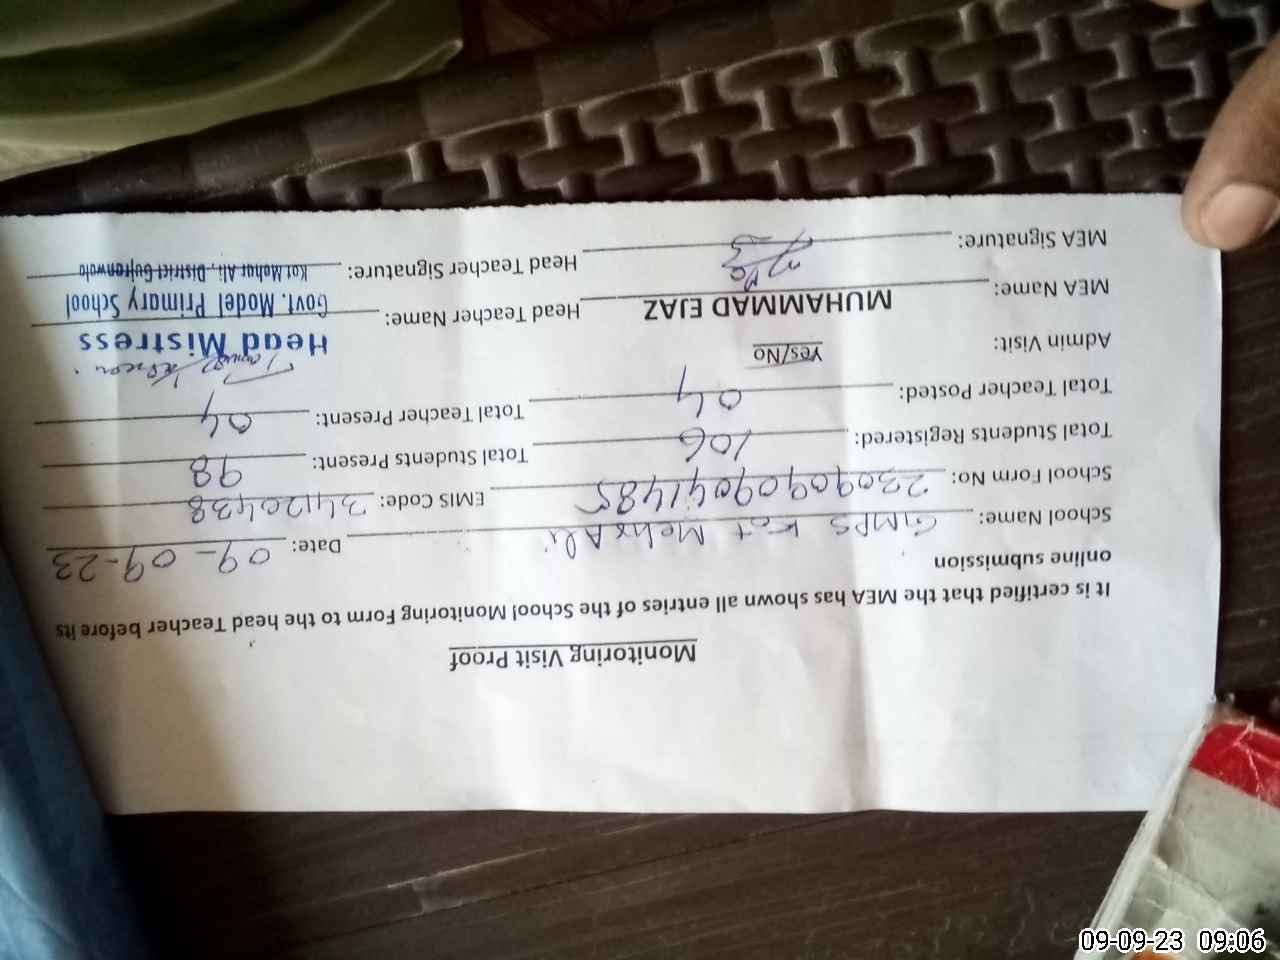 Monitoring Visit Proof
It is certified that the MEA has shown all entries of the School Monitoring Form to the head Teacher before its
online submission
School Name: GMPS Kot Mehr Ali Date: 09-09-23
School Form No: 23090909041485 EMIS Code: 34120438
Total Students Registered: 106 Total Students Present: 98
Total Teacher Posted: 04 Total Teacher Present: 04
Admin Visit: Yes/No
MEA Name: MUHAMMAD EJAZ Head Teacher Name: Head Mistress
Govt. Model Primary School
MEA Signature: Head Teacher Signature: Kot Mehar Ali, District Gujranwala
09-09-23 09:06